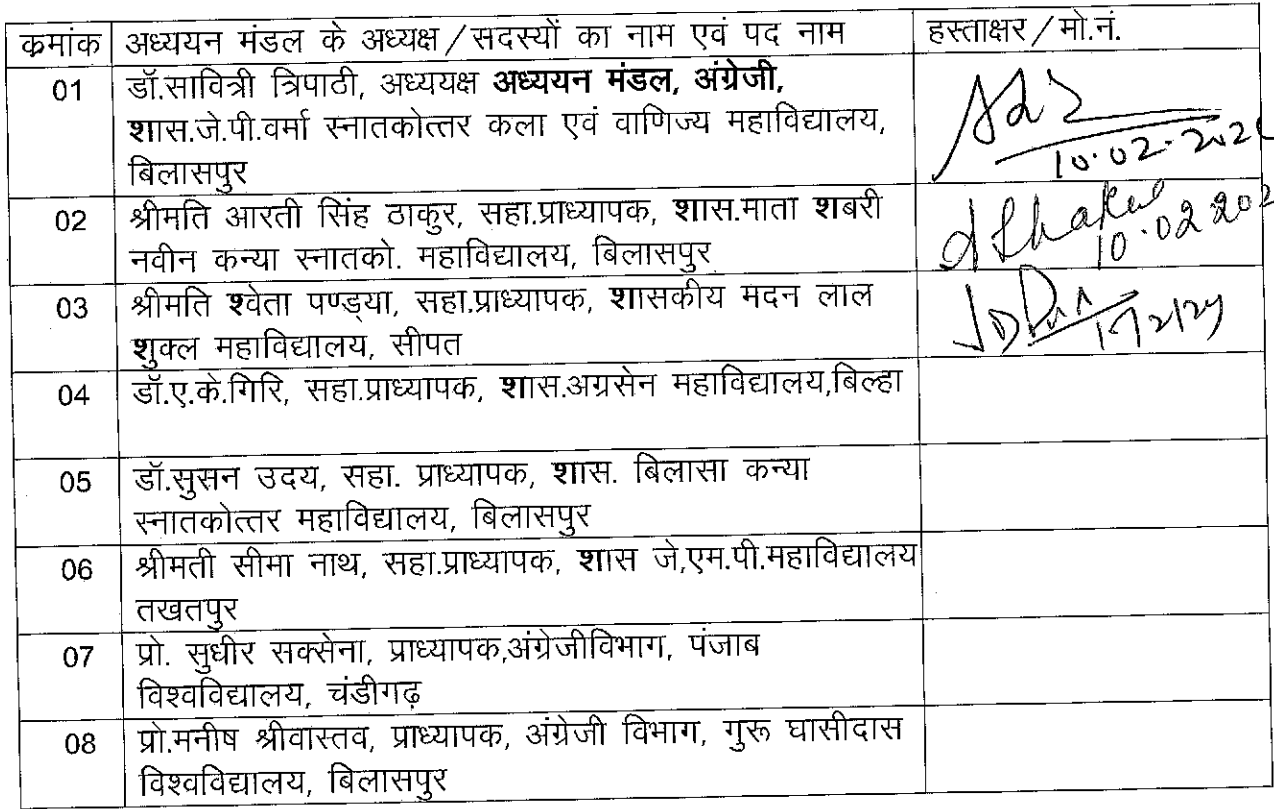 क्रमांक अध्ययन मंडल के अध्यक्ष/सदस्यों का नाम एवं पद नाम हस्ताक्षर/मो.नं.
01 डॉ.सावित्री त्रिपाठी, अध्ययक्ष अध्ययन मंडल, अंग्रेजी,
शास.जे.पी.वर्मा स्नातकोत्तर कला एवं वाणिज्य महाविद्यालय,
बिलासपुर
10.02.202
02 श्रीमति आरती सिंह ठाकुर, सहा.प्राध्यापक, शास.माता शबरी
नवीन कन्या स्नातको. महाविद्यालय, बिलासपुर
10.02 202
03 श्रीमति श्वेता पण्ड्या, सहा.प्राध्यापक, शासकीय मदन लाल
शुक्ल महाविद्यालय, सीपत
04 डॉ.ए.के.गिरि, सहा.प्राध्यापक, शास.अग्रसेन महाविद्यालय,बिल्हा
05 डॉ.सुसन उदय, सहा. प्राध्यापक, शास. बिलासा कन्या
स्नातकोत्तर महाविद्यालय, बिलासपुर
06 श्रीमती सीमा नाथ, सहा.प्राध्यापक, शास जे,एम.पी.महाविद्यालय
तखतपुर
07 प्रो. सुधीर सक्सेना, प्राध्यापक,अंग्रेजीविभाग, पंजाब
विश्वविद्यालय, चंडीगढ़
08 प्रो.मनीष श्रीवास्तव, प्राध्यापक, अंग्रेजी विभाग, गुरू घासीदास
विश्वविद्यालय, बिलासपुर